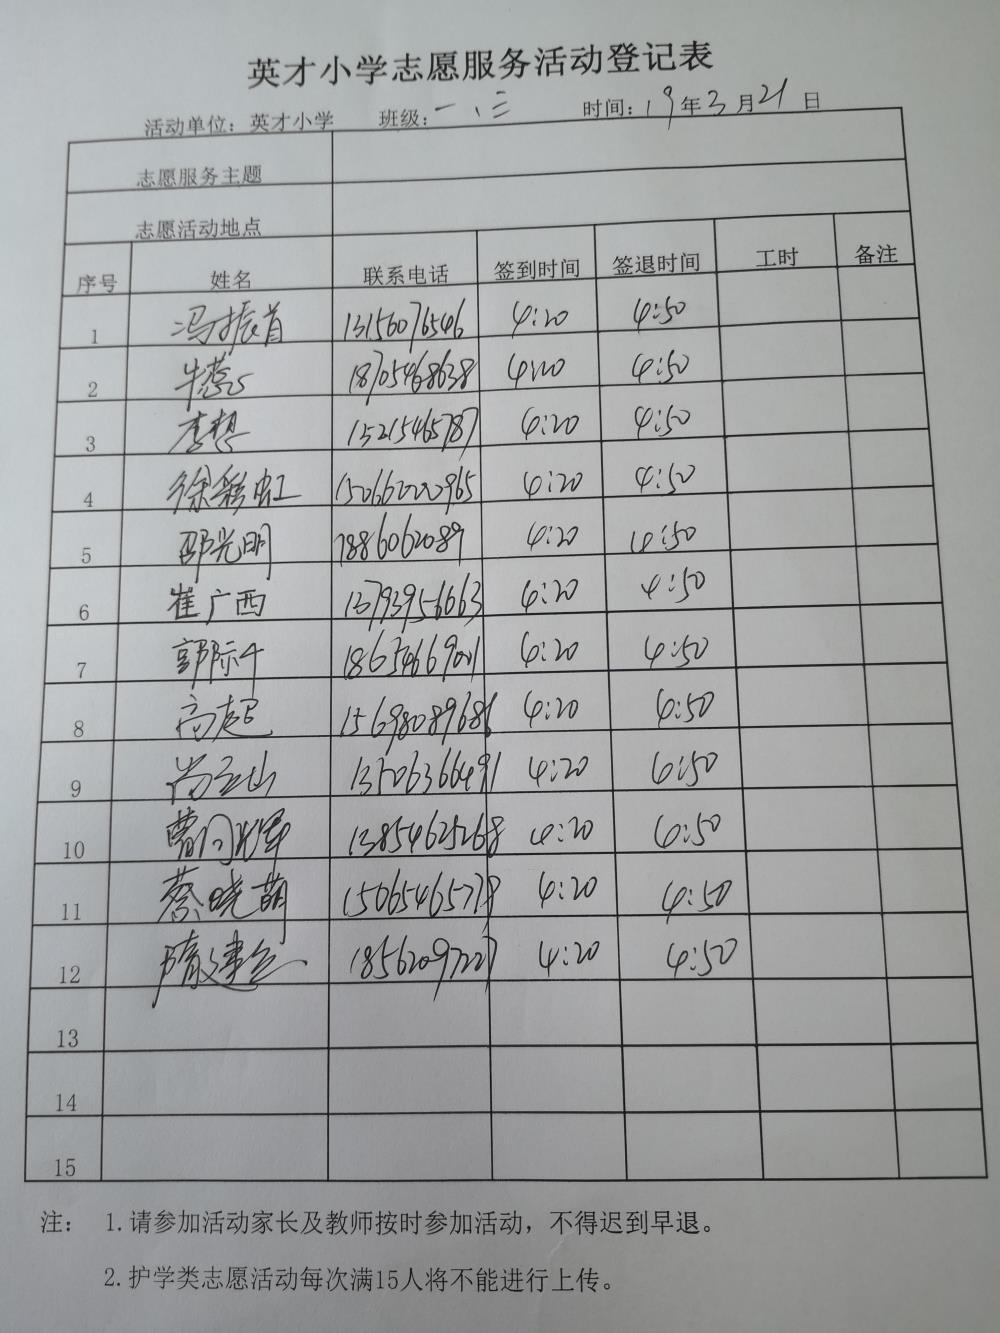 英才小学志愿服务活动登记表
活动单位：英才小学 班级：一.三 时间：19年3月21日
志愿服务主题
志愿活动地点
序号 姓名 联系电话 签到时间 签退时间 工时 备注
1 冯振首 13156076546 4:20 4:50
2 牛蕊 18705468638 4:20 4:50
3 李想 15215465787 4:20 4:50
4 徐彩虹 4:20 4:50
5 邵光明 4:20 4:50
6 崔广西 13793956663 4:20 4:50
7 郭际千 18654669001 4:20 4:50
8 高超 15698089686 4:20 4:50
9 尚立山 13506366491 4:20 6:50
10 曹 13854625268 4:20 6:50
11 蔡晓萌 4:20 4:50
12 隋建 18562097227 4:20 4:50
13
14
15
注： 1.请参加活动家长及教师按时参加活动，不得迟到早退。
2.护学类志愿活动每次满15人将不能进行上传。